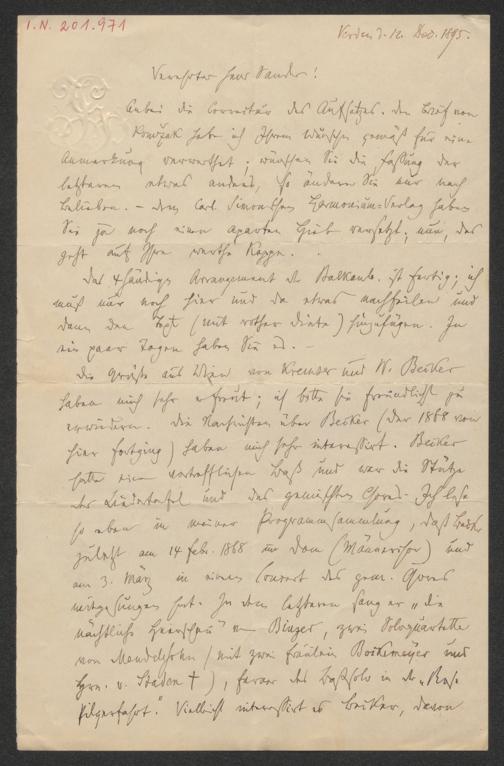 I.N. 201.971
Verden d. 12. Dec. 1895.
Verehrter Herr Sander!
Anbei die Correctur des Aufsatzes. Den Brief von
habe ich Ihrem Wunsche gemäß für eine
Anmerkung verwerthet; wünschen Sie die Fassung der
letzteren etwas anders, so ändern Sie nur nach
Belieben. – Dem Carl Simon'schen Harmonium-Verlag haben
Sie ja noch einen aparten Hieb versetzt; nun, das
geht auf Ihre werthe Kappe.
Das 4händige Arrangement der Balkanb. ist fertig; ich
muß nur noch hier und da etwas nachfeilen und
dann den Text (mit rother Dinte) hinzufügen. In
ein paar Tagen haben Sie es. –
Die Grüße aus Wien von Kremser und W. Becker
haben mich sehr erfreut; ich bitte sie freundlichst zu
erwiedern. Die Nachrichten über Becker (der 1868 von
hier fortging) haben mich sehr interessirt. Becker
hatte einen vortrefflichen Baß und war die Stütze
der Liedertafel und des gemischten Chores. Ich lese
so eben in meiner Programmsammlung, daß Becker
zuletzt am 14 Febr. 1868 im Dom (Männerchor) und
am 3. März in einem Concert des gem. Chores
mitgesungen hat. In dem letzteren sang er „die
nächtliche Heerschau" von , zwei Soloquartette
von Mendelssohn (mit zwei Fräulein und
Hrn. v. Staden †), ferner das Baßsolo in der „Rose
Pilgerfahrt." Vielleicht interessirt es Becker, davon